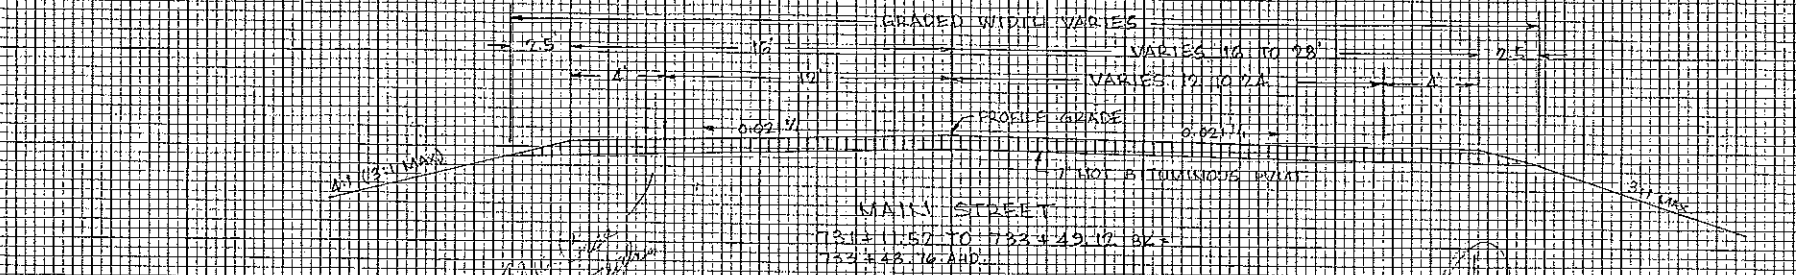 GRADED WIDTH VARIES
2.5' 16' VARIES 16 TO 28' 2.5
4' 12' VARIES 12 TO 24 4'
PROFILE GRADE
0.021/1 0.021/1
4:1 (3:1 MAX)
7" HOT BITUMINOUS PVMT.
3:1 MAX
MAIN STREET
731+11.52 TO 733+49.12 BK=
733+48.76 AHD.